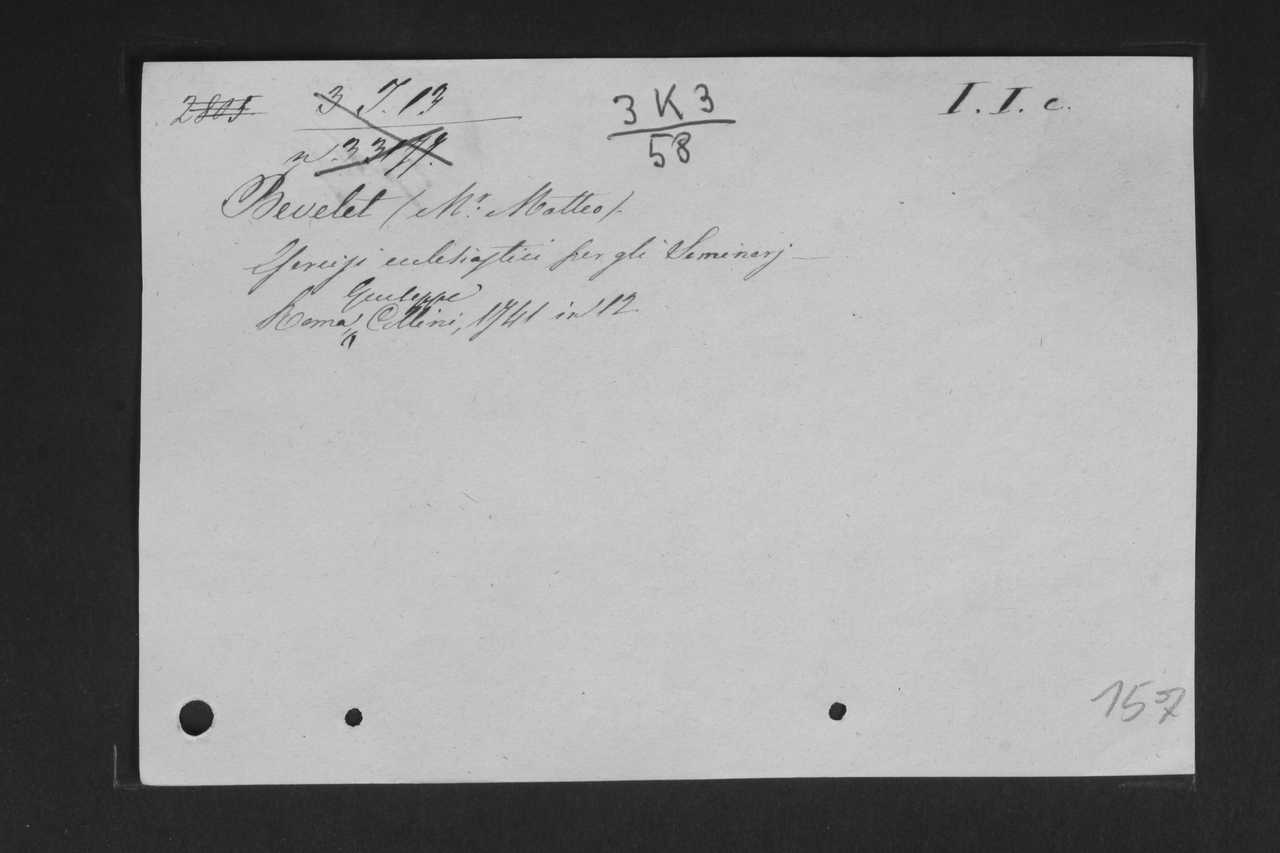 2805 3 J. 13 3 K 3 I. I. c.
n. 33 58
Bevelet (Mr. Matteo).
Esercizj ecclesiastici per gli Seminarj —
Giuseppe
Roma, Collini, 1741 in 12.
157